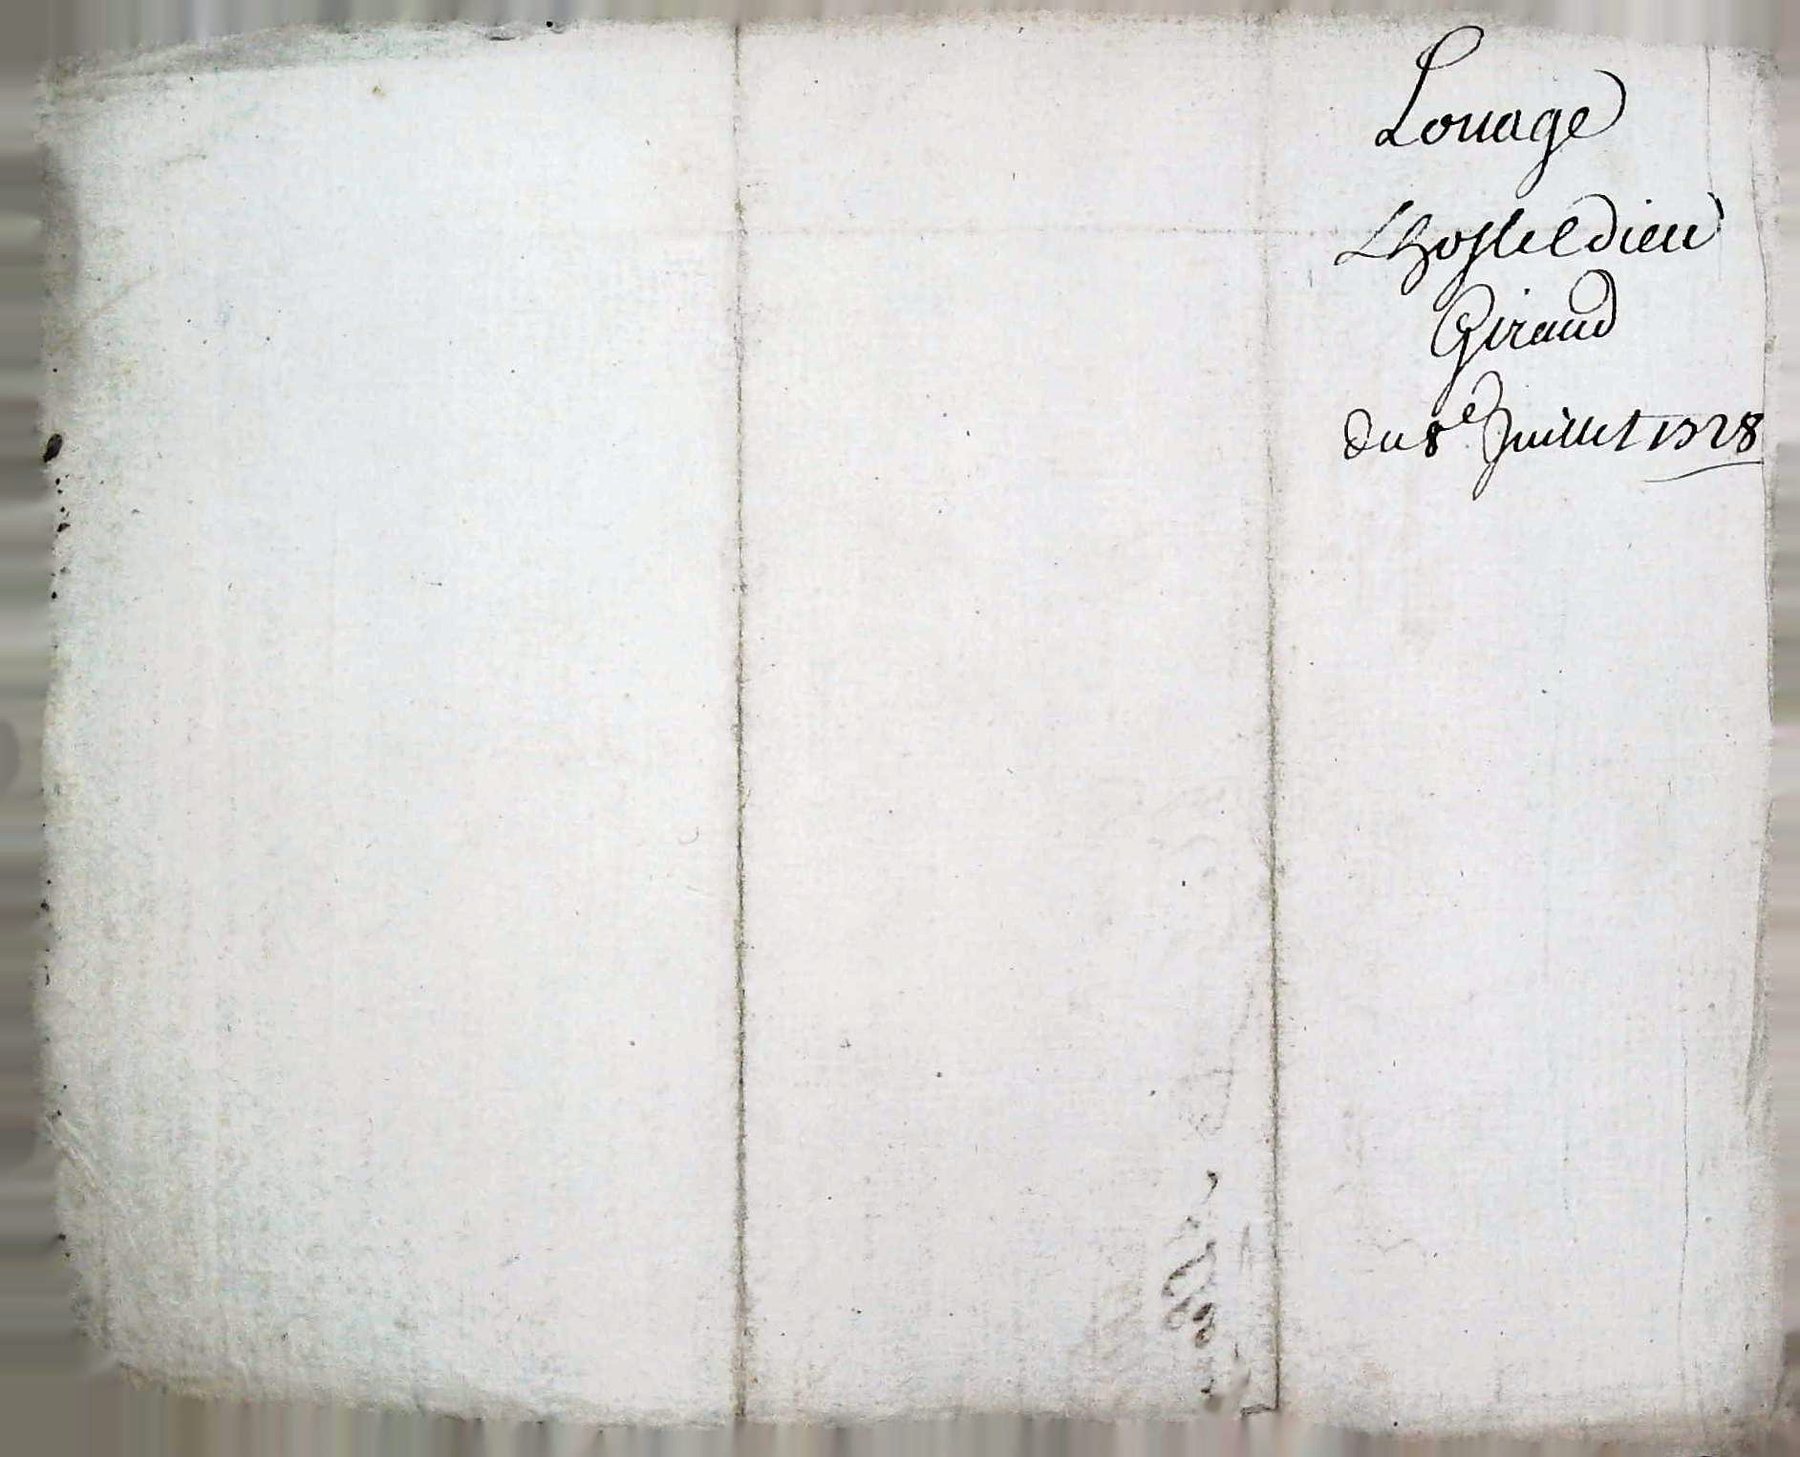 Louage
Lhostel dieu
Giraud
du 8e Juillet 1728